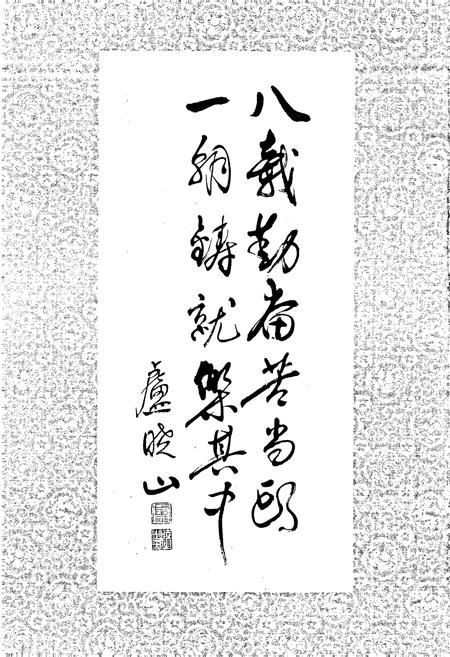 八載勤奮苦當頭
一朝鑄就樂其中
盧曉山